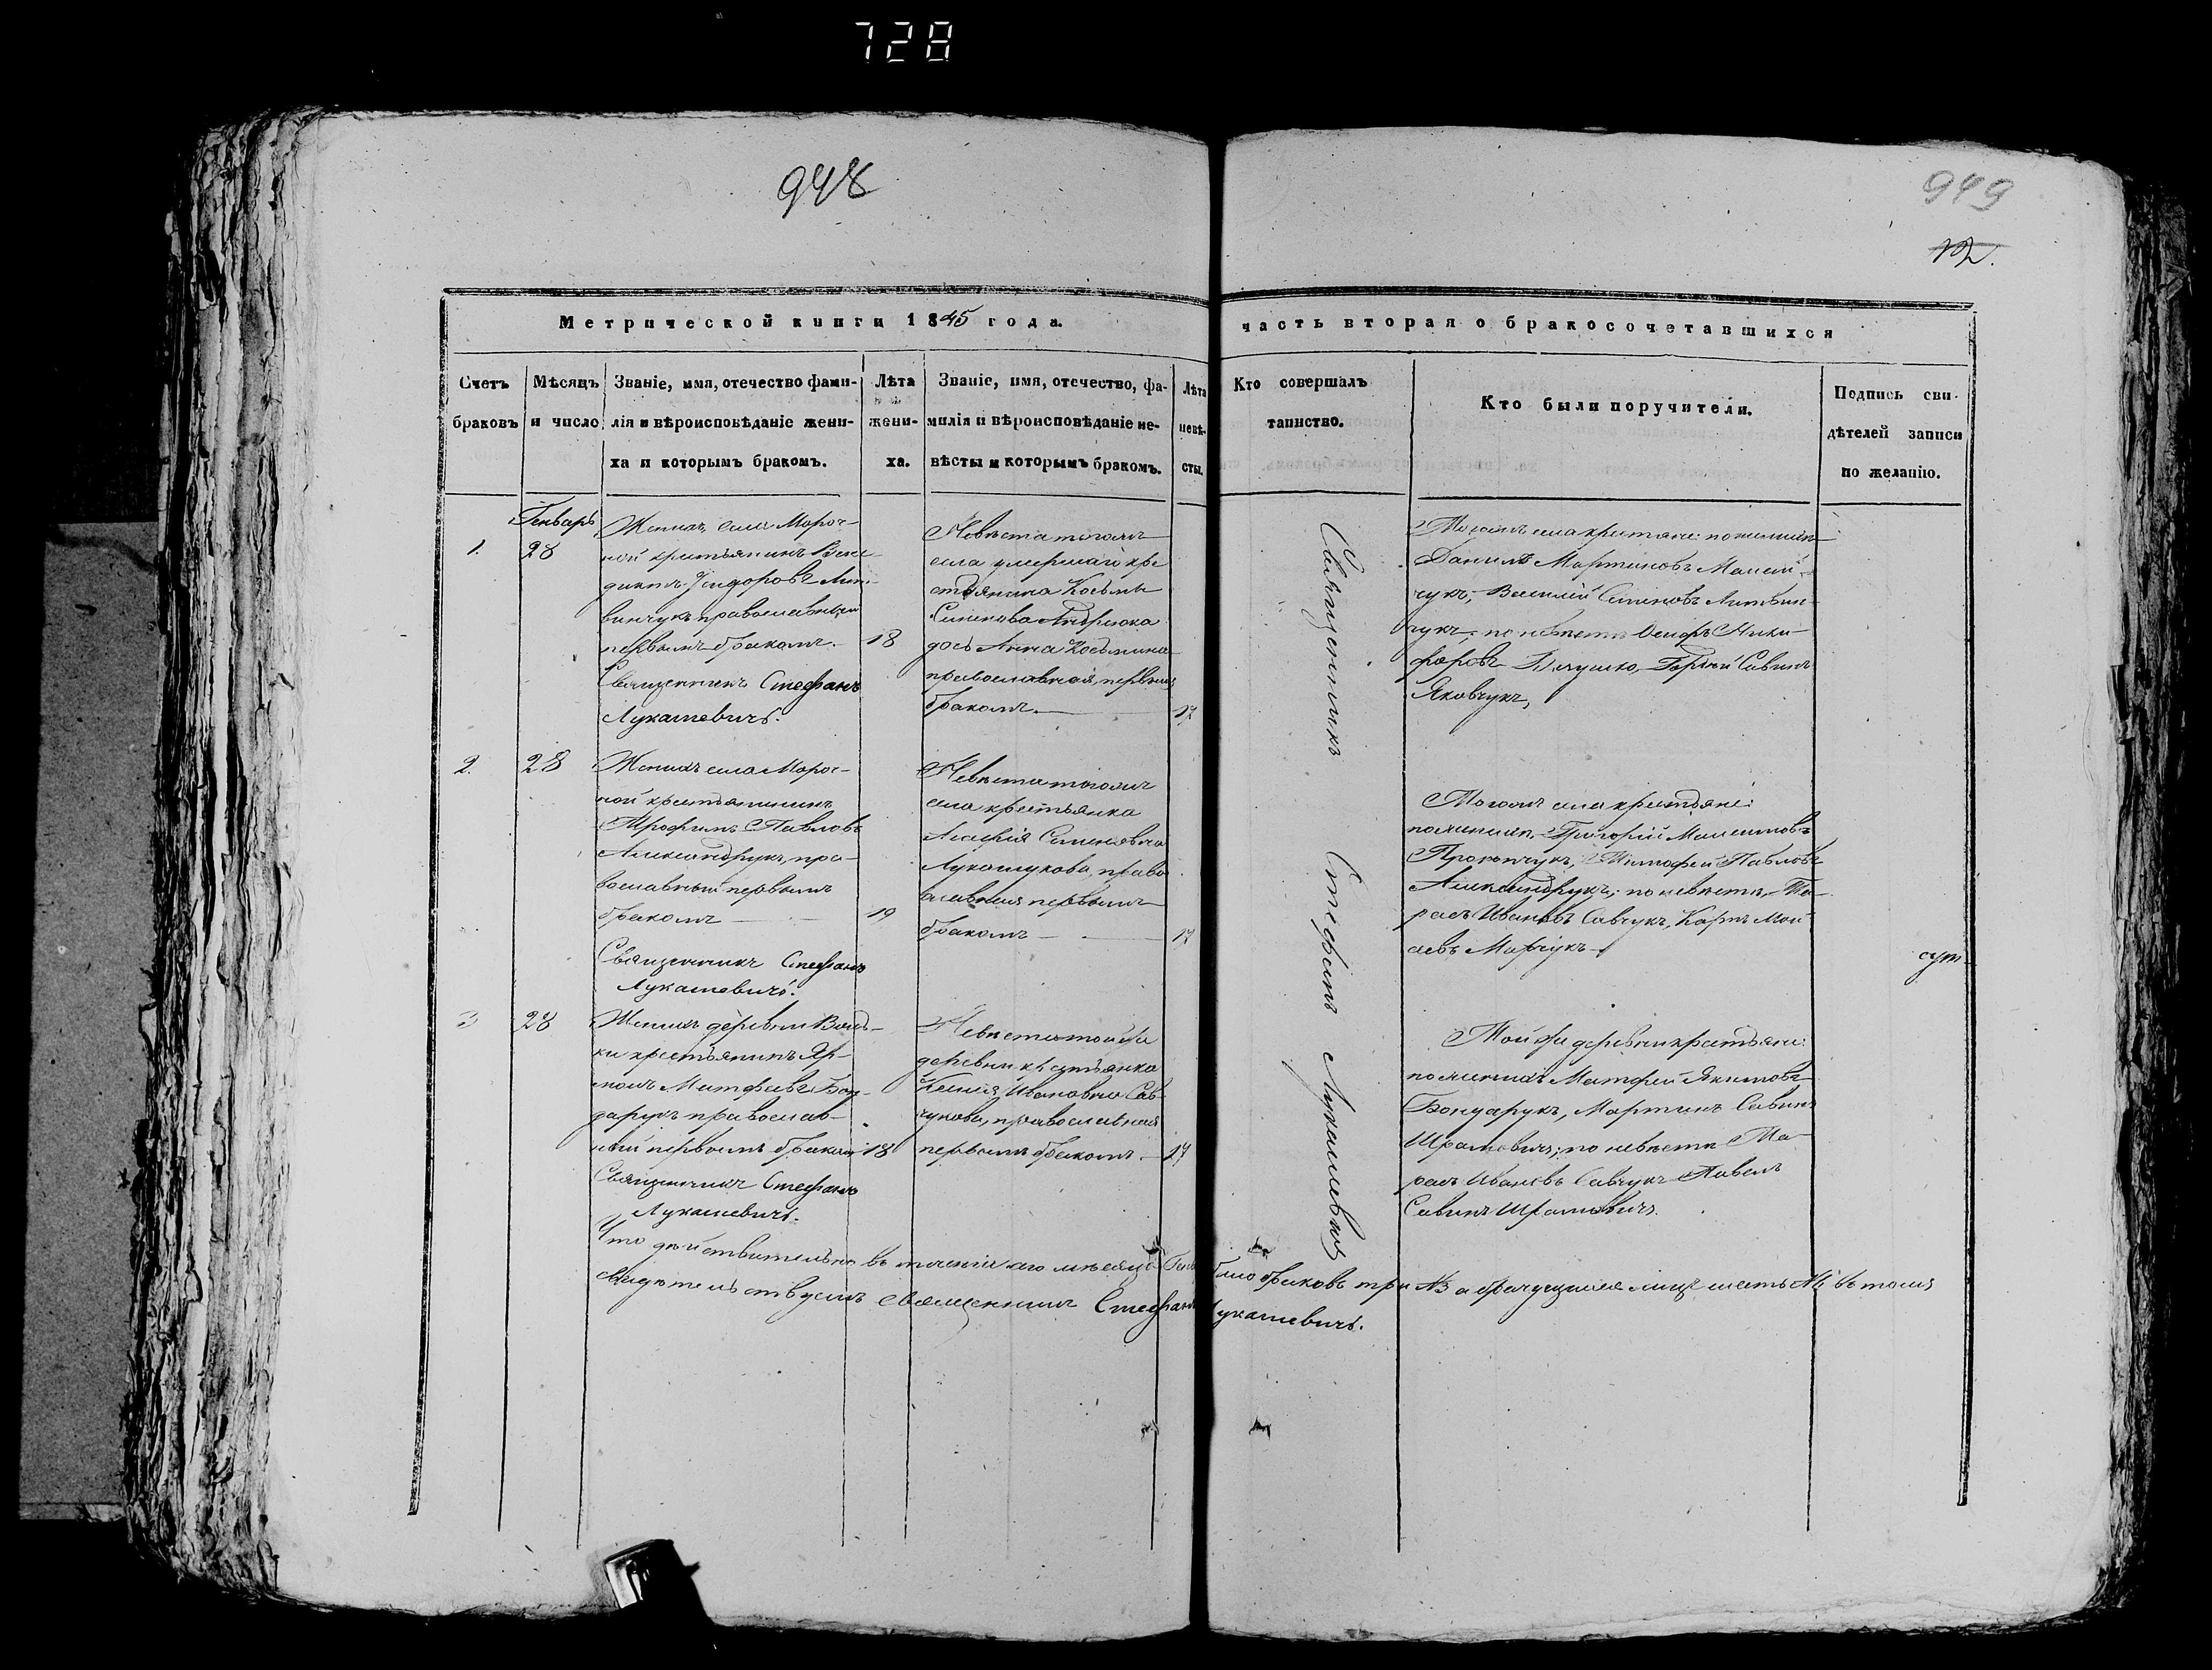 728
948
949
12.
Метрической книги 1845 года.
часть вторая о бракосочетавшихся
Счетъ браковъ
Мѣсяцъ и число
Званіе, имя, отечество фами-
лія и вѣроисповѣданіе жени-
ха и которымъ бракомъ.
Лѣта
жени-
ха.
Званіе, имя, отечество, фа-
милія и вѣроисповѣданіе не-
вѣсты и которымъ бракомъ.
Лѣта
невѣ-
сты.
Кто совершалъ
таинство.
Кто были поручители.
Подпись сви-
дѣтелей записи
по желанію.
Генварь
1.
28
Женихъ села Мороч-
ной крестьянинъ Вене-
диктъ Сидоровъ Лит-
винчукъ православный
первымъ бракомъ.
18
Священникъ Стефанъ
Лукашевичъ.
Невѣста тогожъ
села умершаго кре
стьянина Козьмы
Семенова Андрюка
дочь Анна Козьмина
православная, первымъ
бракомъ.
17
Священникъ Стефанъ Лукашевичъ
Тогожъ села крестьяне: по женихѣ
Данилъ Мартиновъ Моисей-
чукъ, Василій Семеновъ Литвин-
чукъ; по невѣстѣ Ники-
форовъ Савинъ
Яковчукъ,
2.
28
Женихъ села Мороч-
ной крестьянинъ
Трофимъ Павловъ
Александрукъ, пра-
вославный первымъ
бракомъ
19
Священникъ Стефанъ
Лукашевичъ.
Невѣста тогожъ
села крестьянка
Агафія Семеновна
Лукашукова, право
славная первымъ
бракомъ
17
Тогожъ села крестьяне:
по женихѣ Григорій
Прокопчукъ, Тимофей Павловъ
Александрукъ; по невѣстѣ, Та-
расъ Ивановъ Савчукъ, Карпъ Мои
сеевъ Марчукъ
3
28
Женихъ деревни Вовд-
ки крестьянинъ Яр-
молъ Матфеевъ Бон-
дарукъ православ-
ный первымъ бракомъ
18
Священникъ Стефанъ
Лукашевичъ.
Невѣста той же
деревни крестьянка
Ксенія Ивановна Сав-
чукова, православная
первымъ бракомъ.
17
Той же деревни крестьяне:
по женихѣ Матфей Якимовъ
Бондарукъ, Мартинъ Савинъ
Шрамовичъ; по невѣстѣ Та-
расъ Ивановъ Савчукъ Павелъ
Савинъ Шрамовичъ.
Что дѣйствительно въ теченіи мѣсяца было браковъ три №3 а лицъ шесть №6 въ томъ
свидѣтельствуемъ священникъ Стефанъ Лукашевичъ.